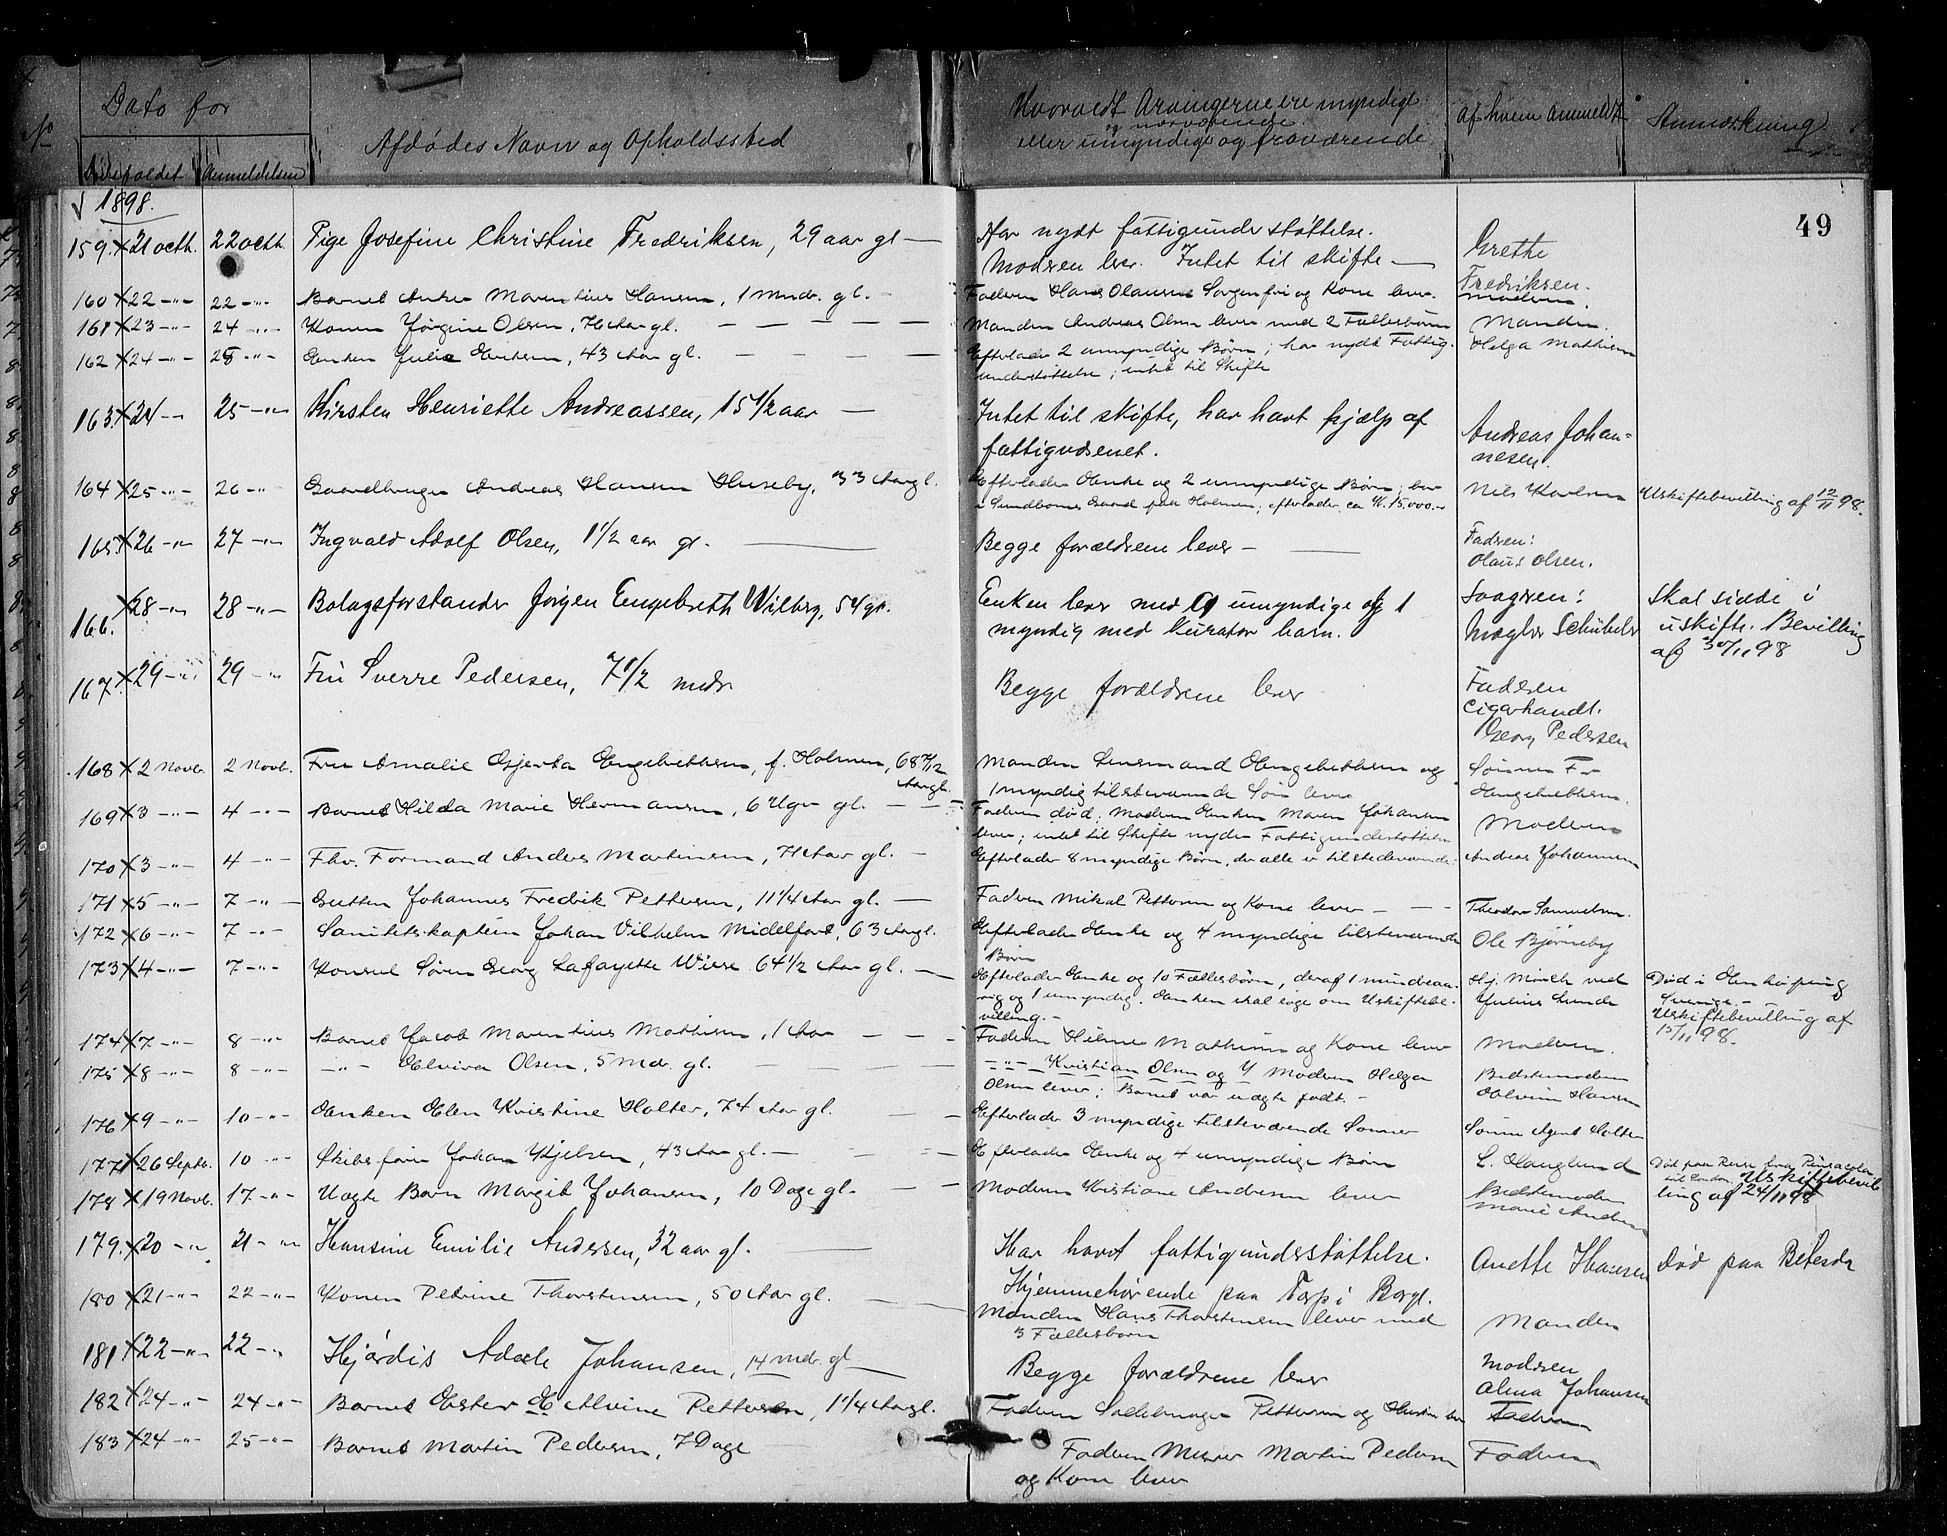 No
Dato for
Dødsfaldet
Anmeldelsen
Afdødes Navn og Opholdssted
Hvorvidt Arvingerne ere myndige
eller umyndige og nærværende og fraværende
af hvem anmeldt
Anmærkning
49
1898.
159. 21 octb. 22 octb. Pige Josefine Christine Fredriksen, 29 aar gl — Har nydt fattigunderstøttelse. Grethe
Moderen lever. Intet til skifte — Fredriksen.
160 22 -"- 22 -"- Barnet Anker Marentius Hansen, 1 Mndr. gl. - Faderen Hans Olausen Sorgenfri og Kone lever. Moderen.
161 23 -"- 24 -"- Konen Jørgine Olsen, 76 Aar gl. — Manden Andreas Olsen lever med 2 Fællesbørn Manden.
162 24 -"- 25 -"- Enken Julie Eriksen, 43 Aar gl. — Efterlader 2 umyndige Børn; har nydt Fattig- Helga Mathisen
understøttelse; intet til Skifte
163. 24 -"- 25 -"- Kirsten Henriette Andreassen, 15 1/2 aar — Intet til skifte, har havt hjælp af Andreas Johan=
fattigvæsenet. nesen.
164 25 -"- 26 -"- Gaardbruger Andreas Hansen Huseby, 33 Aar gl. Efterlader Enke og 2 umyndige Børn; bor Nils Karlsen Uskiftebevilling af 12/11 98.
i Sundbones Gaard paa Holmen; efterlader ca Kr. 15.000.-
165 26 -"- 27 -"- Ingvald Adolf Olsen, 1 1/2 aar gl. — Begge forældrene lever — Faderen:
Olaus Olsen.
166. 28 -"- 28 -"- Bolagsforstander Jørgen Engebreth Wilberg, 54 gl. Enken lever med umyndige og 1 Sagfører: Skal sidde i
myndig med Kurator barn. Mægler Schübeler uskifte. Bevilling
af 30/11 98
167. 29 -"- 29 -"- Fin Sverre Pedersen, 7 1/2 mdr Begge forældrene lever Faderen
Cigarhandl.
Georg Pedersen
168 2 Novb. 2 Novb. Fru Amalie Gjerta Engebrethsen, f. Holmen, 68 7/12 Aar gl. Manden Lensmand Engebrethsen og Sønnen Fr
1 myndig tilsteværende Søn lever Engebrethsen.
169 3 -"- 4 -"- Barnet Hilda Marie Hermansen, 6 Uger gl. — Faderen død; Moderen Enken Maren Johansen Moderen
lever; intet til Skifte nyder Fattigunderstøttelse
170 3 -"- 4 -"- Fhv. Formand Anders Martinsen, 71 Aar gl. — Efterlader 8 myndige Børn, der alle er tilstedeværende. Andreas Johannesen
171 5 -"- 7 -"- Gutten Johannes Fredrik Pettersen, 11 1/4 Aar gl. — Faderen Mikal Pettersen og Kone lever — Theodor Samuelsen.
172 6 -"- 7 -"- Sanitetskaptein Johan Vilhelm Midelfart, 63 Aar gl. Efterlader Enke og 4 myndige tilsteværende Ole Bjørneby
Børn
173 4 -"- 7 -"- Konsul Søren Georg Lafayette Wiese 64 1/2 Aar gl. — Efterlader Enke og 10 Fællesbørn, deraf 1 mindreaa- Hj. Münch ved Død i Enkøping
rig og 1 umyndig. Enken skal søge om Uskiftebe- Julius Lunde Sverige.-
villing.- Uskiftebevilling af
15/11 98.
174 7 -"- 8 -"- Barnet Jacob Marentius Mathisen, 1 Aar — Faderen Hilmer Mathisen og Kone lever Moderen.
175 8 -"- 8 -"- -"- Elvira Olsen, 5 Mdr. gl. — -"- Kristian Olsen og Moderen Helga Bedstemoderen
Olsen lever; Barnet var uægte født. - Elvine Hansen
176 9 -"- 10 -"- Enken Elen Kristine Holter, 74 Aar gl. — Efterlader 3 myndige tilsteværende Sønner Sønnen Agent Holter
177 26 Septb. 10 -"- Skibsfører Johan Kjelsen, 43 Aar gl. — Efterlader Enke og 4 umyndige Børn L. Hauglund Død paa Reise fra Pensacola
til London. Uskiftebevil
178 19 Novb. 17 -"- Uægte Barn Margit Johansen, 10 Dage gl. — Moderen Kristiane Andresen lever Bedstemoder ling af 24/11 98
Marie Andersen
179. 20 -"- 21 -"- Hansine Emilie Andersen, 32 aar gl. — Har havt fattigunderstøttelse. Anette Hansen Død paa Betesda
Hjemmehørende paa Torp i Borge.
180 21 -"- 22 -"- Konen Petrine Thorstensen, 50 Aar gl. — Manden Hans Thorstensen lever med Manden
3 Fællesbørn
181 22 -"- 22 -"- Hjørdis Adele Johansen, 14 mdr. gl — Begge forældrene lever Moderen
Alma Johansen
182 24 -"- 24 -"- Barnet Ester Alvine Pettersen, 1 1/4 Aar gl. Faderen Sadelmager Pettersen og Hustru lever Faderen
183 24 -"- 25 -"- Barnet Martin Pedersen, 7 Dage Faderen Murer Martin Pedersen Faderen
og Kone lever